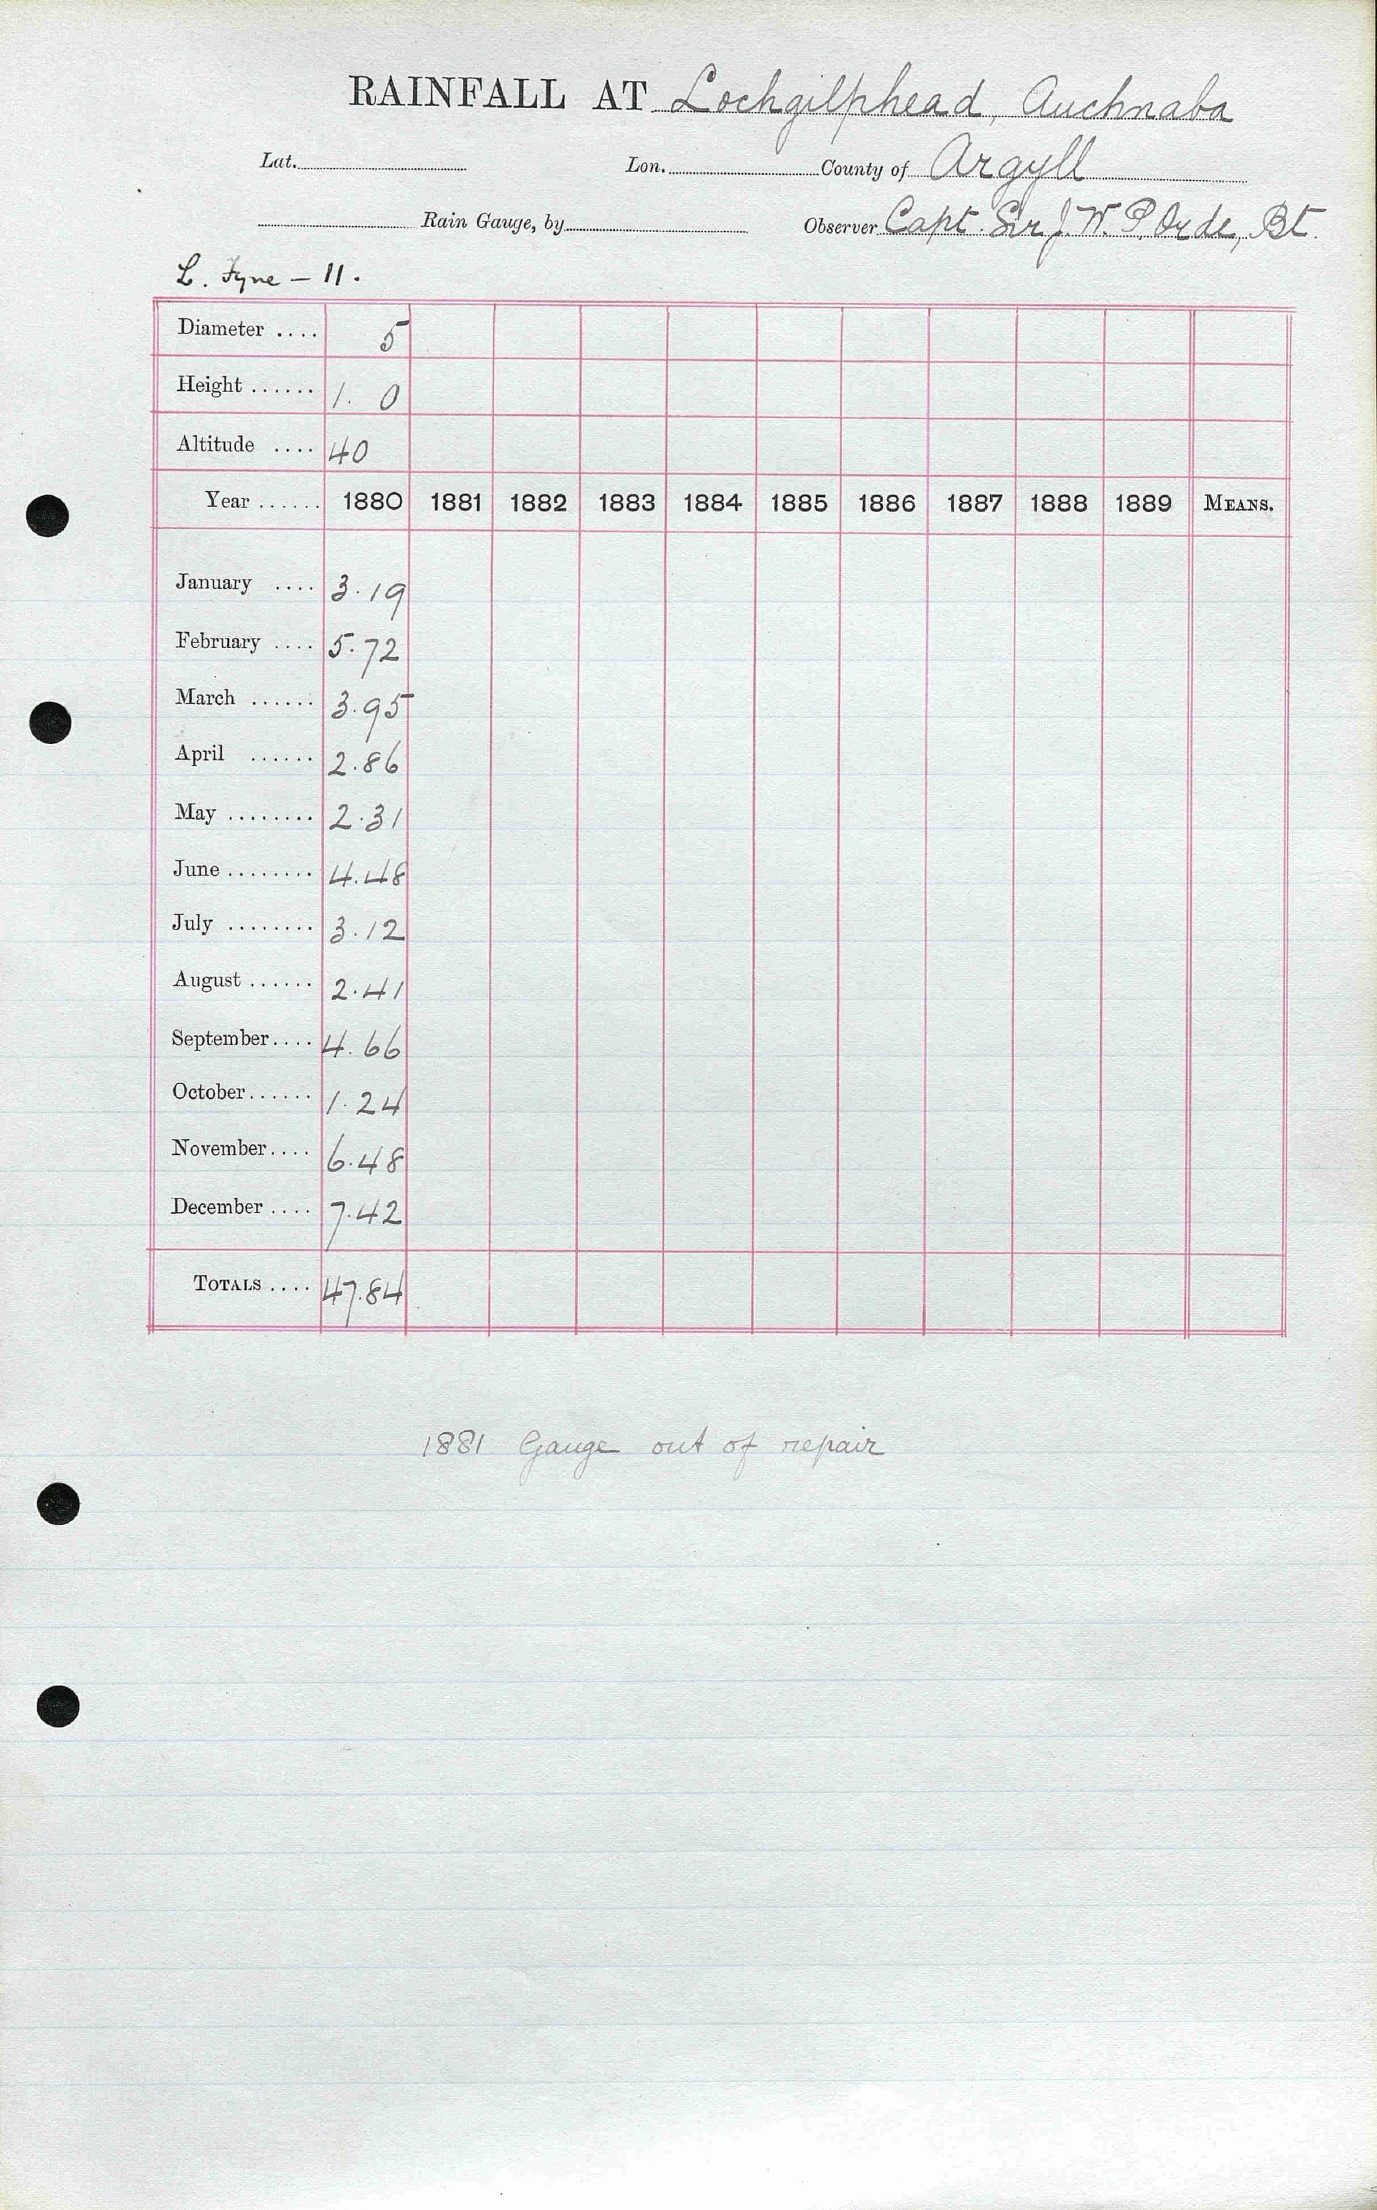 RAINFALL AT Lochgilphead, Auchnaba
Lat. Lon. County of Argyll
Rain Gauge, by Observer Capt. Sir J. W. P. Orde, Bt.
L. Fyne - 11.
Diameter .... 5
Height ...... 1. 0
Altitude .... 40
Year ...... 1880 1881 1882 1883 1884 1885 1886 1887 1888 1889 MEANS.
January .... 3.19
February .... 5.72
March ...... 3.95
April ...... 2.86
May ........ 2.31
June ........ 4.48
July ........ 3.12
August ...... 2.41
September.... 4.66
October...... 1.24
November.... 6.48
December .... 7.42
TOTALS .... 47.84
1881 Gauge out of repair